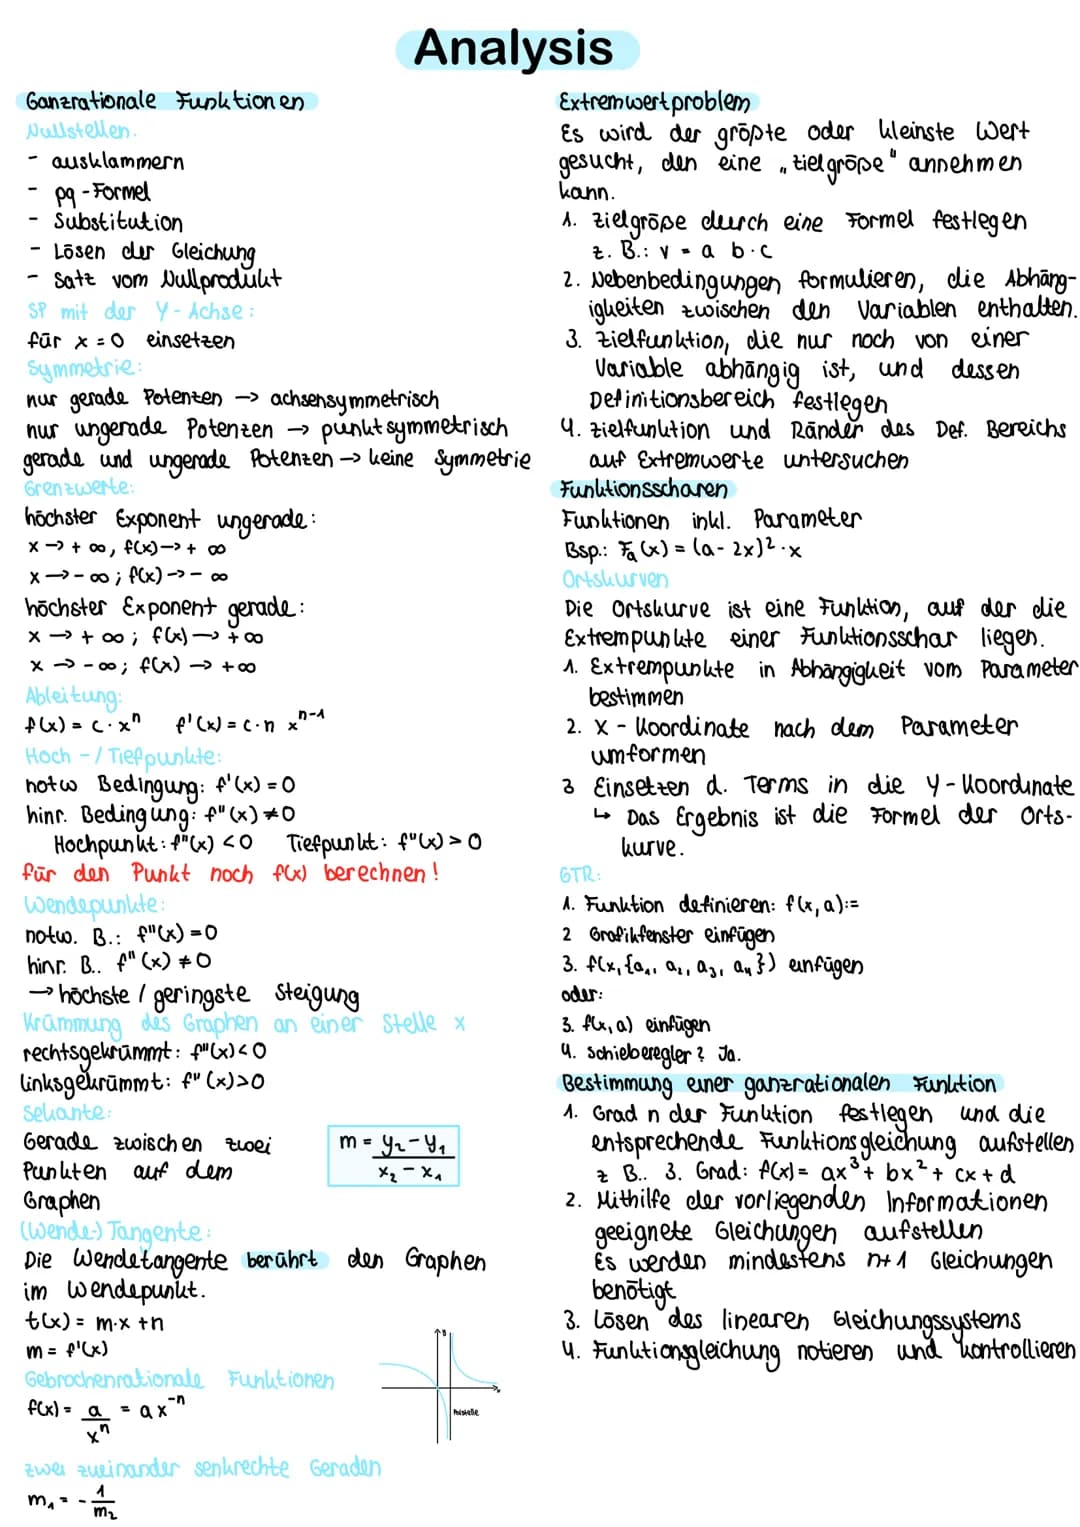 Analysis
Ganzrationale Funktionen
Nullstellen.
- ausklammern
- pq-Formel
- Substitution
- Lösen der Gleichung
- Satz vom Nullprodukt
SP mit der Y-Achse:
für x = 0 einsetzen
Symmetrie:
nur gerade Potenzen → achsensymmetrisch
nur ungerade Potenzen → punktsymmetrisch
gerade und ungerade Potenzen → keine Symmetrie
Grenzwerte:
höchster Exponent ungerade:
x → + ∞, f(x) → + ∞
x → - ∞; f(x) → - ∞
höchster Exponent gerade:
x → + ∞; f(x) → + ∞
x → - ∞; f(x) → + ∞
Ableitung:
f(x) = c · xⁿ f'(x) = c · n xⁿ⁻¹
Hoch-/Tiefpunkte:
notw Bedingung: f'(x) = 0
hinr. Bedingung: f"(x) ≠ 0
Hochpunkt: f"(x) < 0 Tiefpunkt: f"(x) > 0
für den Punkt noch f(x) berechnen!
Wendepunkte:
notw. B.: f"(x) = 0
hinr. B.. f"(x) ≠ 0
→ höchste / geringste Steigung
Krümmung des Graphen an einer Stelle x
rechtsgekrümmt: f"(x) < 0
linksgekrümmt: f"(x) > 0
Sekante:
Gerade zwischen zwei
Punkten auf dem
Graphen
m = y₂ - y₁
x₂ - x₁
(Wende-) Tangente:
Die Wendetangente berührt den Graphen
im Wendepunkt.
t(x) = m·x + n
m = f'(x)
Gebrochenrationale Funktionen
f(x) = a/xⁿ = a x⁻ⁿ
Polstelle
zwei zueinander senkrechte Geraden
m₁ = - 1/m₂
Extremwertproblem
Es wird der größte oder kleinste Wert
gesucht, den eine „Zielgröße" annehmen
kann.
1. Zielgröße durch eine Formel festlegen
z. B.: V = a b · c
2. Nebenbedingungen formulieren, die Abhäng-
igkeiten zwischen den Variablen enthalten.
3. Zielfunktion, die nur noch von einer
Variable abhängig ist, und dessen
Definitionsbereich festlegen
4. Zielfunktion und Ränder des Def. Bereichs
auf Extremwerte untersuchen
Funktionsscharen
Funktionen inkl. Parameter
Bsp.: Fₐ(x) = (a - 2x)² · x
Ortskurven
Die Ortskurve ist eine Funktion, auf der die
Extrempunkte einer Funktionsschar liegen.
1. Extrempunkte in Abhängigkeit vom Parameter
bestimmen
2. X - Koordinate nach dem Parameter
umformen
3 Einsetzen d. Terms in die Y-Koordinate
↳ Das Ergebnis ist die Formel der Orts-
kurve.
GTR:
1. Funktion definieren: f(x, a):=
2 Grafikfenster einfügen
3. f(x, {a₁, a₂, a₃, a₄}) einfügen
oder:
3. f(x, a) einfügen
4. Schieberegler? Ja.
Bestimmung einer ganzrationalen Funktion
1. Grad n der Funktion festlegen und die
entsprechende Funktionsgleichung aufstellen
z B.. 3. Grad: f(x) = ax³ + bx² + cx + d
2. Mithilfe der vorliegenden Informationen
geeignete Gleichungen aufstellen
Es werden mindestens n+1 Gleichungen
benötigt
3. Lösen des linearen Gleichungssystems
4. Funktionsgleichung notieren und kontrollieren